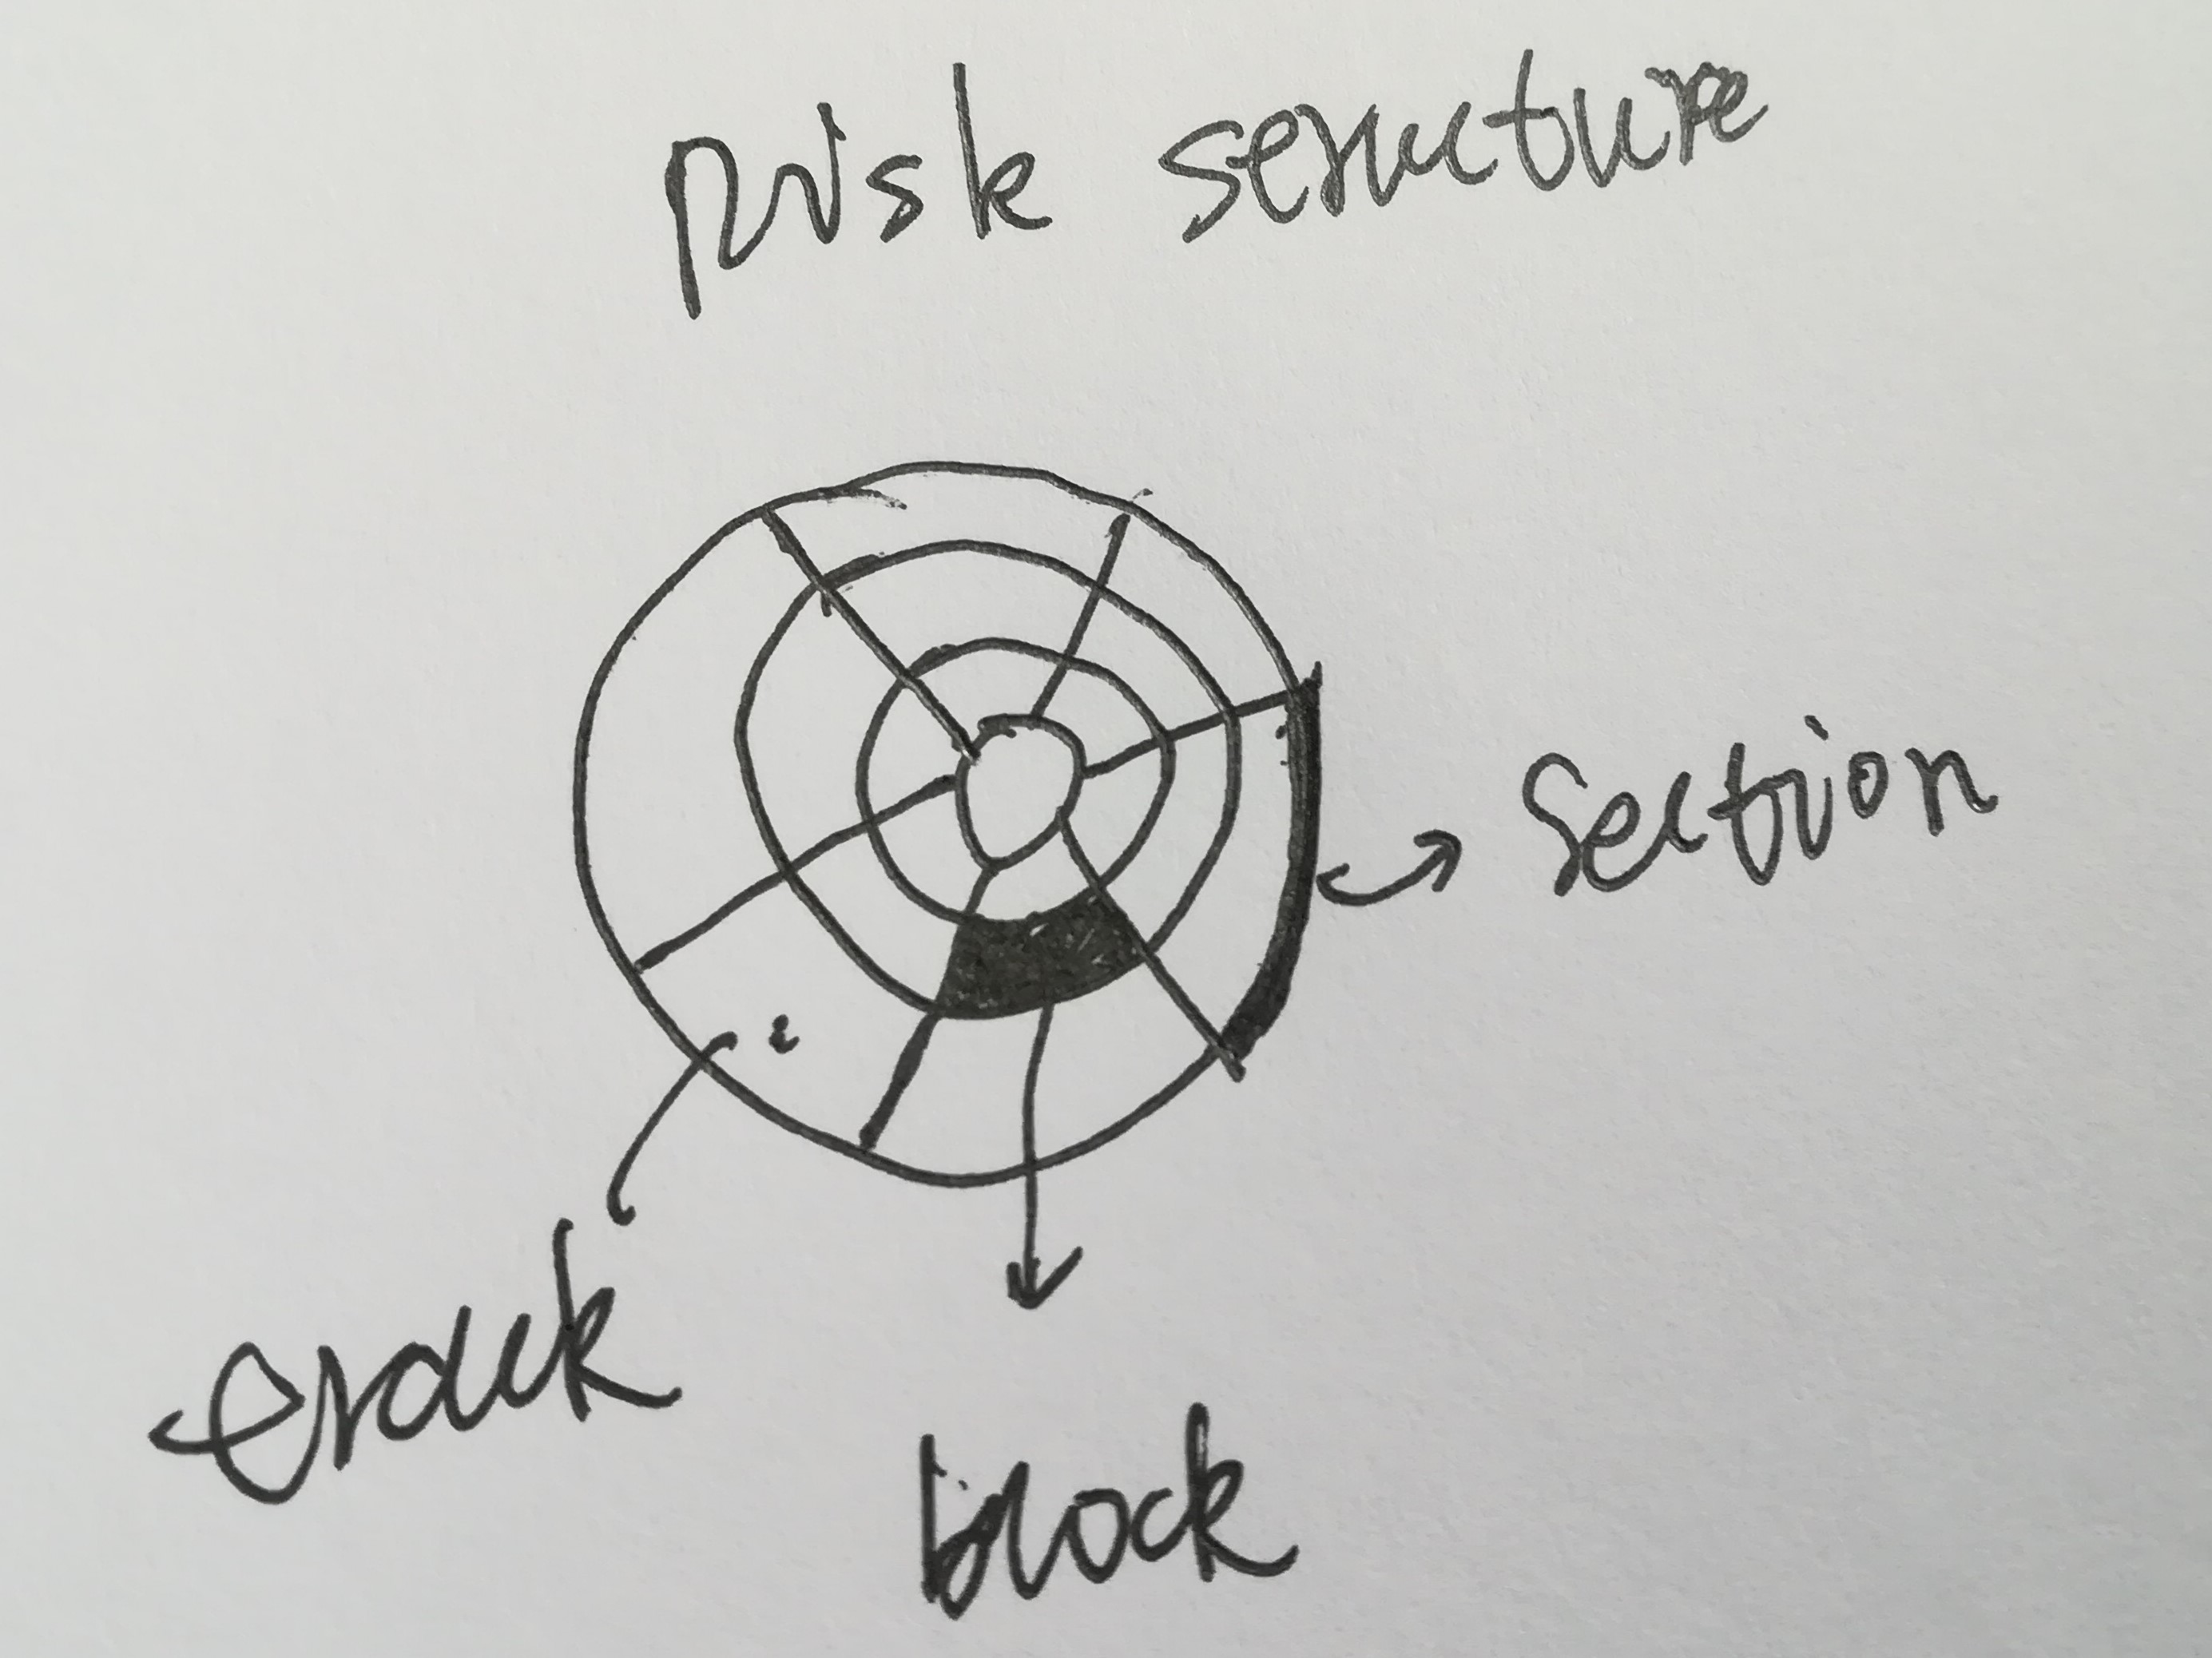 Risk structure
section
track
block